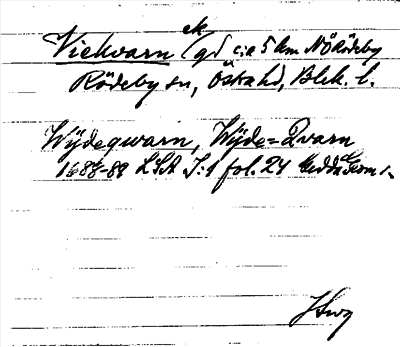 Viekvarn ek/gd c:a 5 km NÖ Rödeby
Rödeby sn, Östra hd, Blek. l.
Wijdeqwarn, Wijde=Qvarn
1688-89 LSA I:1 fol. 24